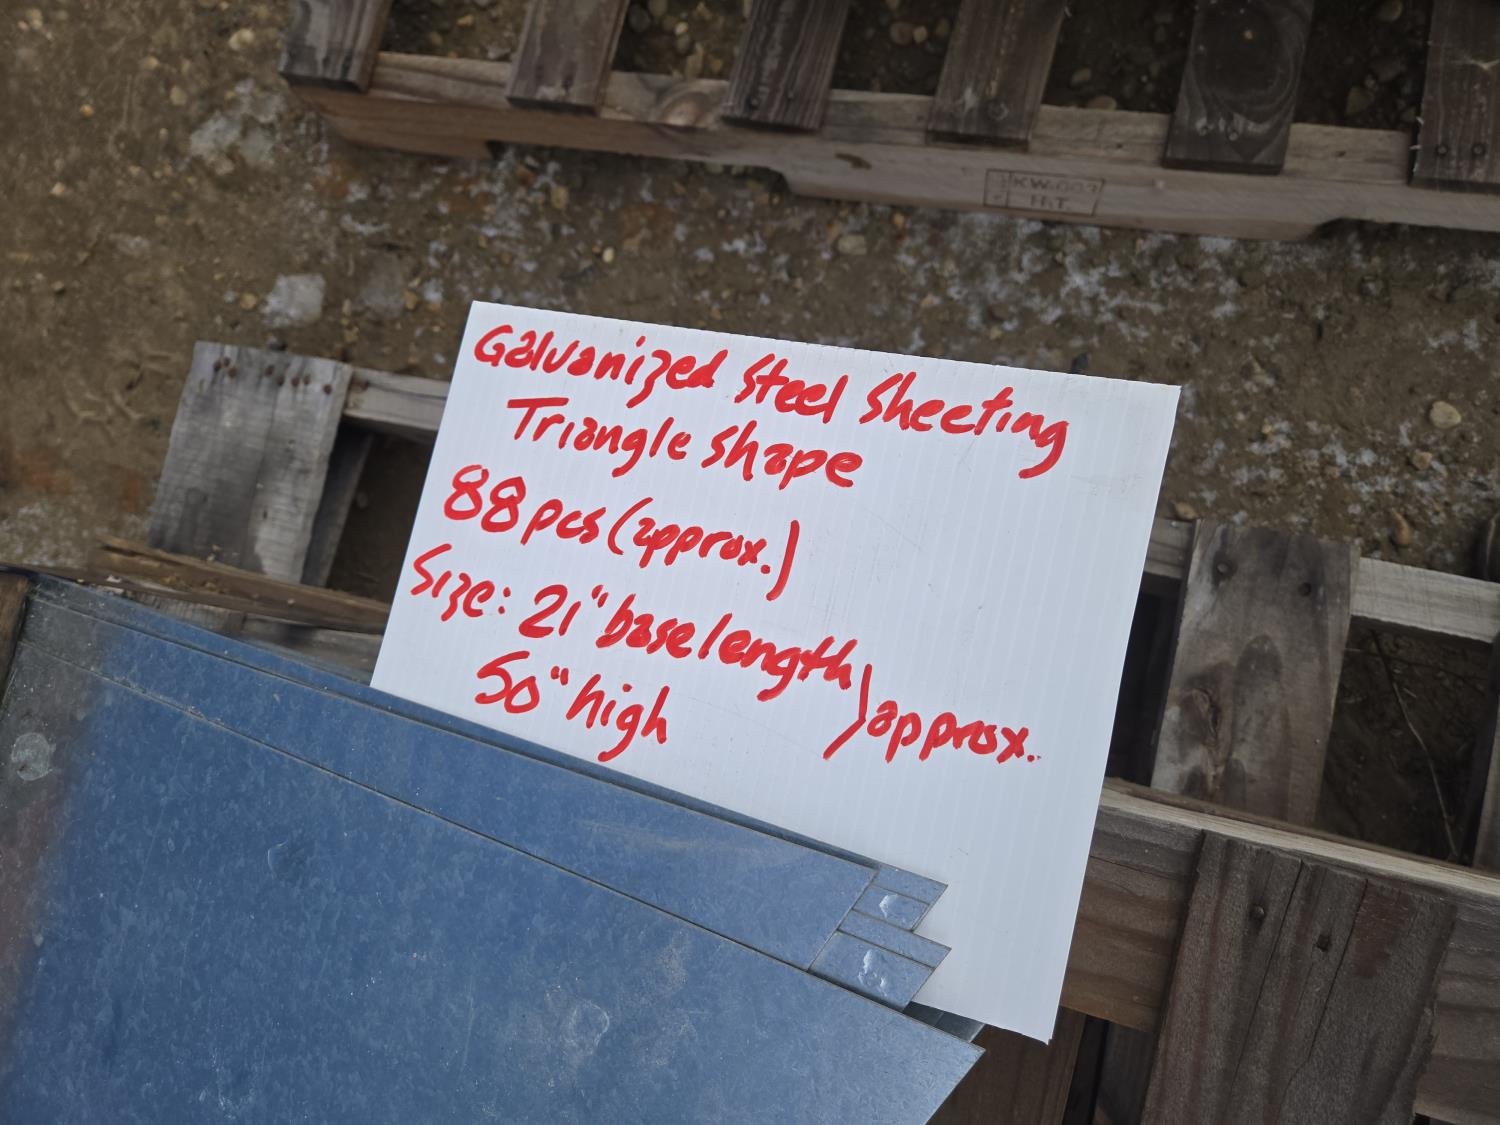 KW-009
HT
Galvanized Steel Sheeting
Triangle shape
88 pcs (approx.)
Size: 21" base length
50" high
) approx.